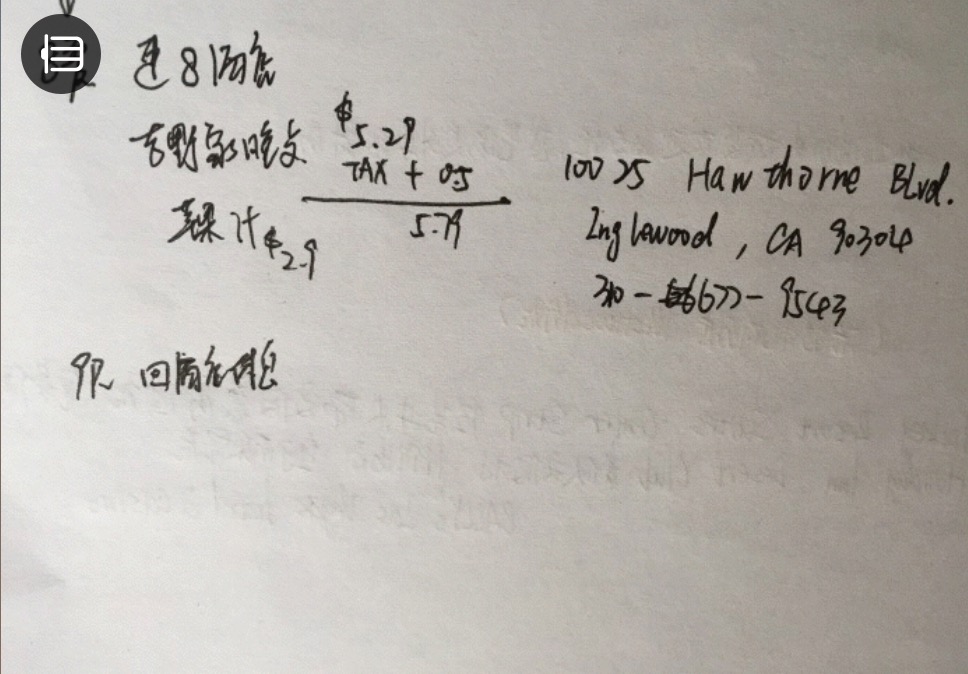 逛8酒店
吉野家晚交 $5.29
TAX + 0.5
5.79
蔬果汁 $2.9
10025 Hawthorne Blvd.
Inglewood, CA 90304
310 - 677 - 9543
9PM 回酒店休息